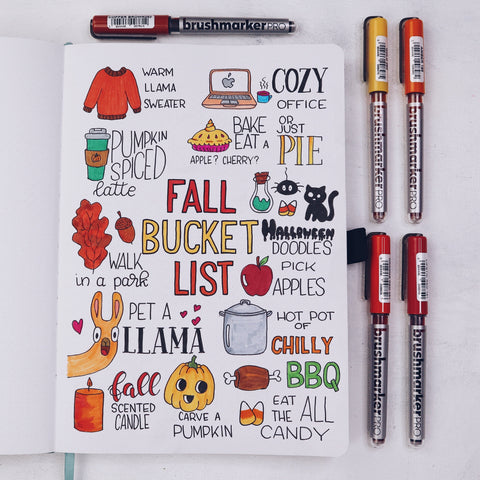 brushmarkerPRO
WARM
LLAMA
SWEATER
COZY
OFFICE
PUMPKIN
SPICED
latte
BAKE
EAT a
OR
JUST
PIE
APPLE? CHERRY?
FALL
BUCKET
LIST
HALLOWEEN
DOODLES
WALK
in a park
PICK
APPLES
PET A
LLAMA
HOT POT
OF
CHILLY
BBQ
fall
SCENTED
CANDLE
CARVE A
PUMPKIN
EAT
THE ALL
CANDY
brushmarkerPRO
brushmarkerPRO
brushmarkerPRO
brushmarkerPRO